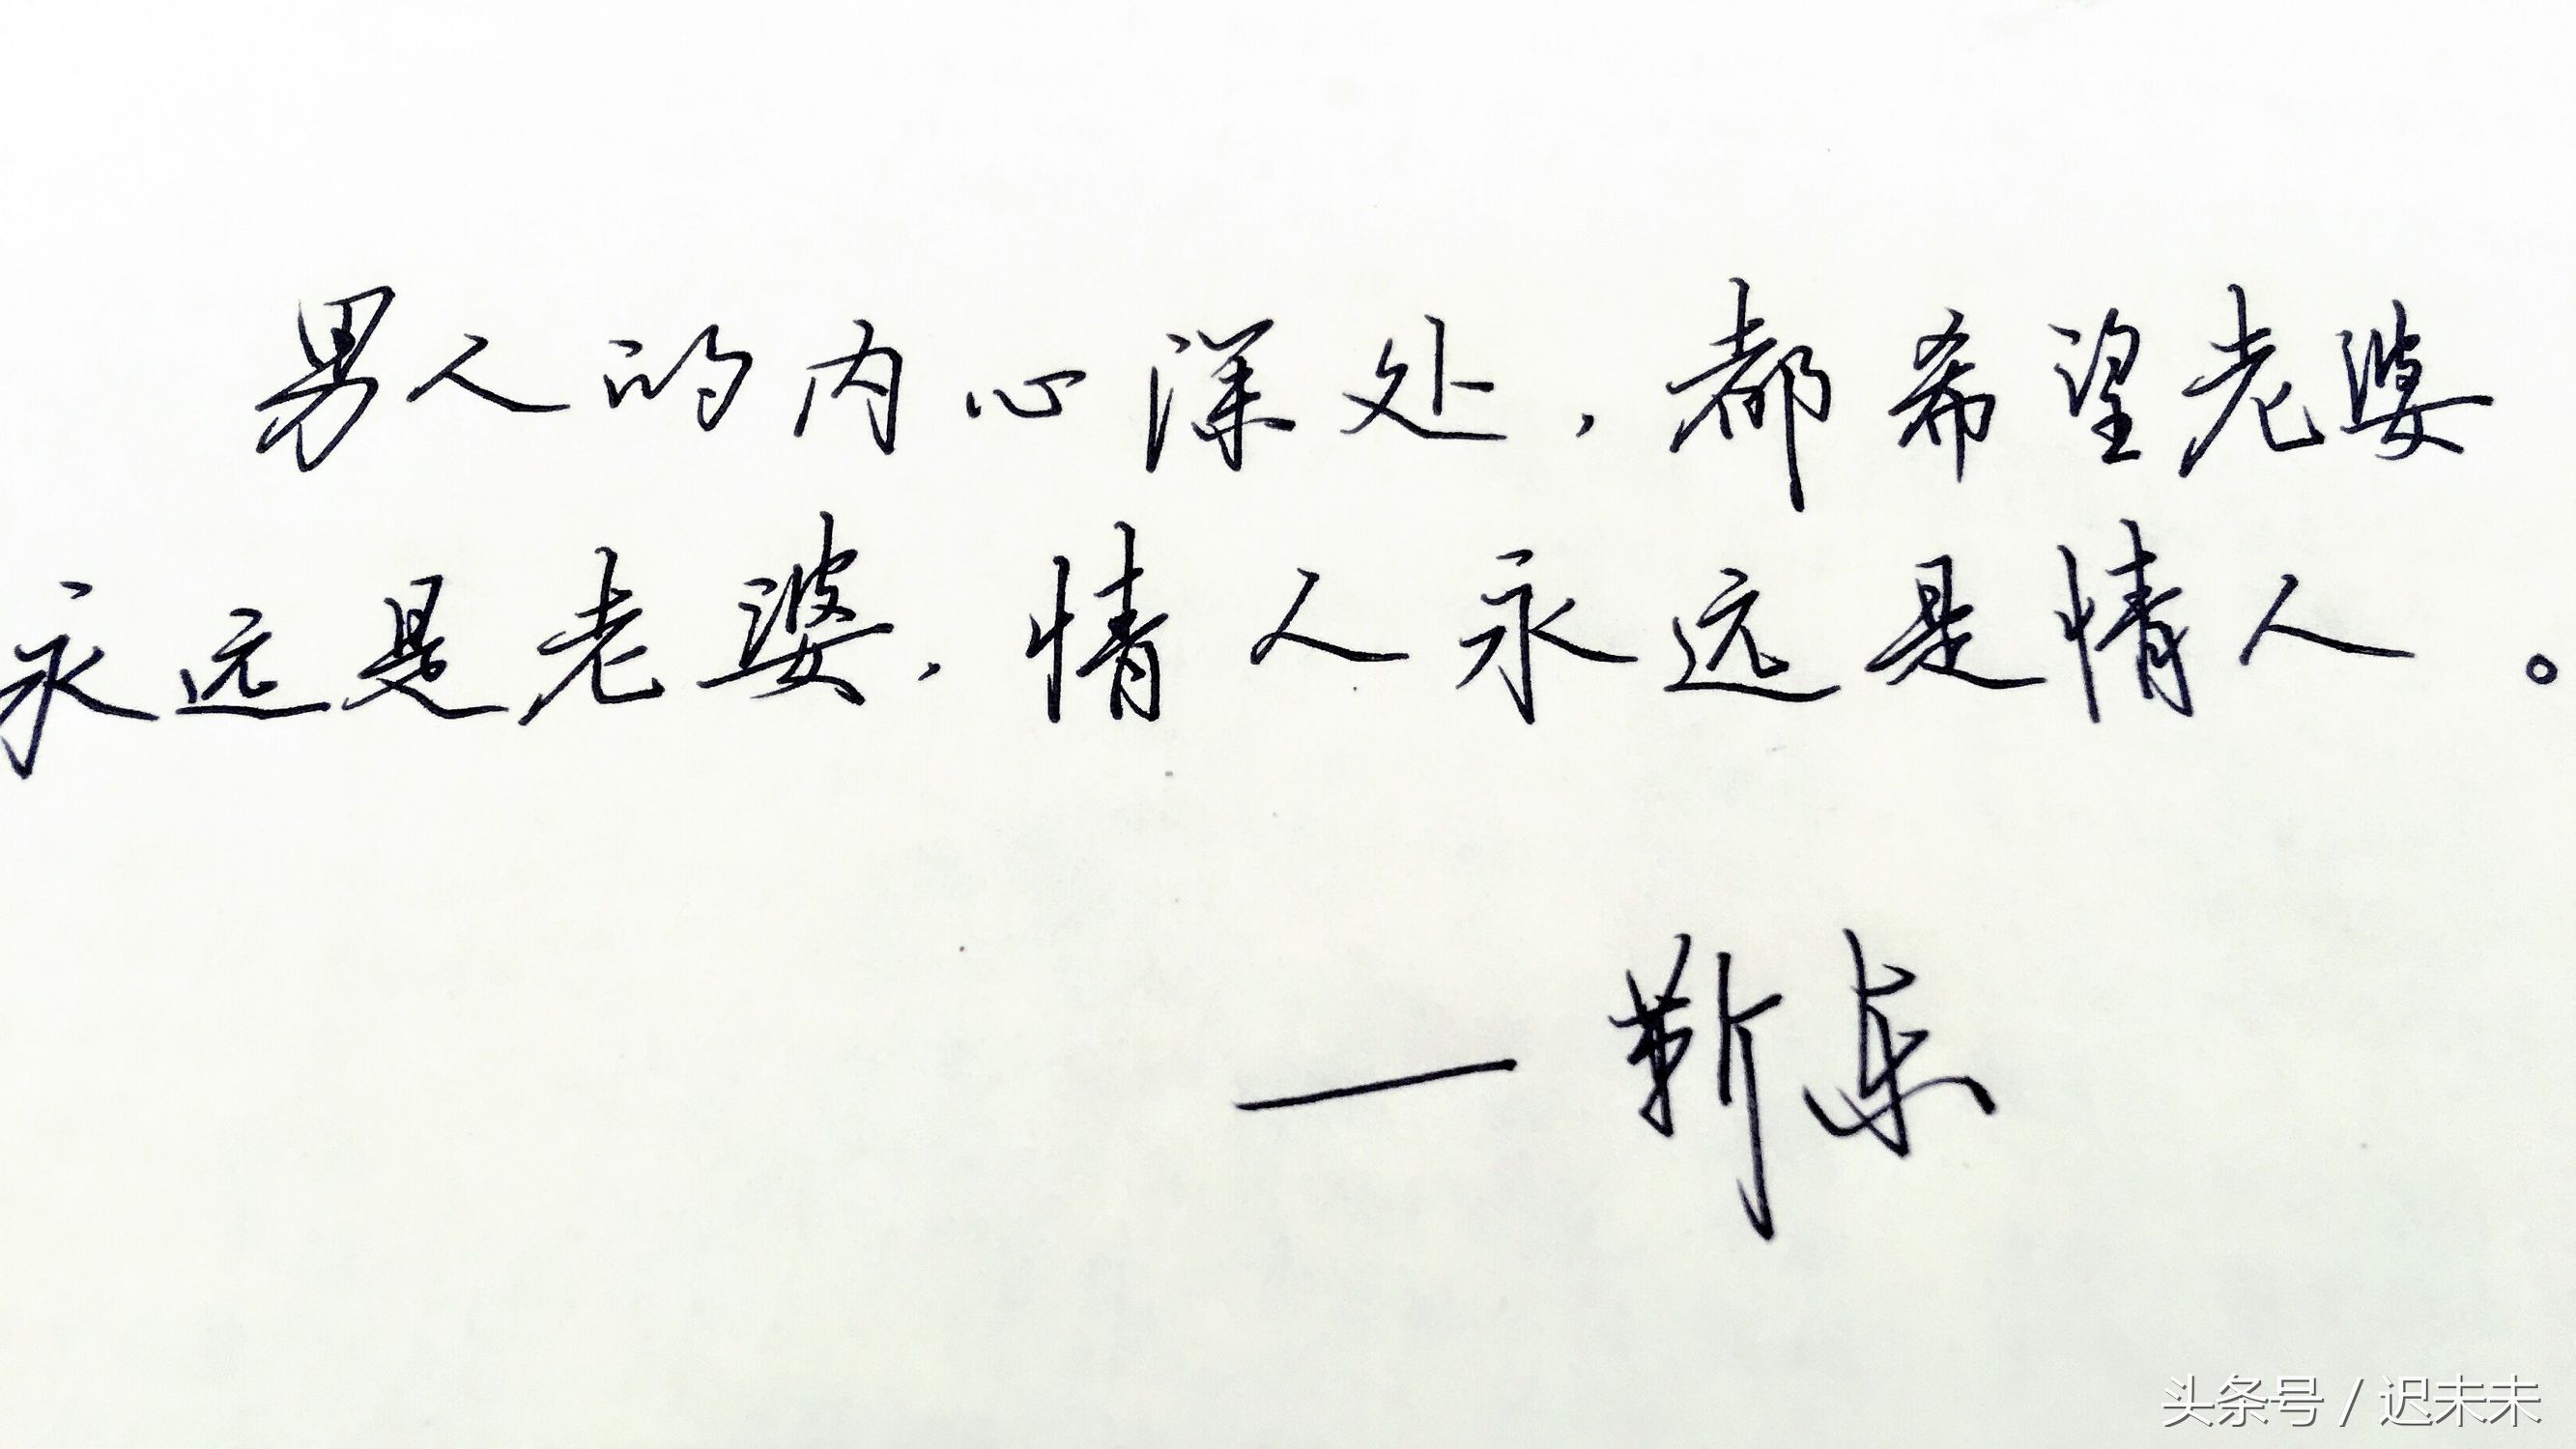 男人的内心深处,都希望老婆
永远是老婆,情人永远是情人。
— 靳东
头条号 / 迟未未